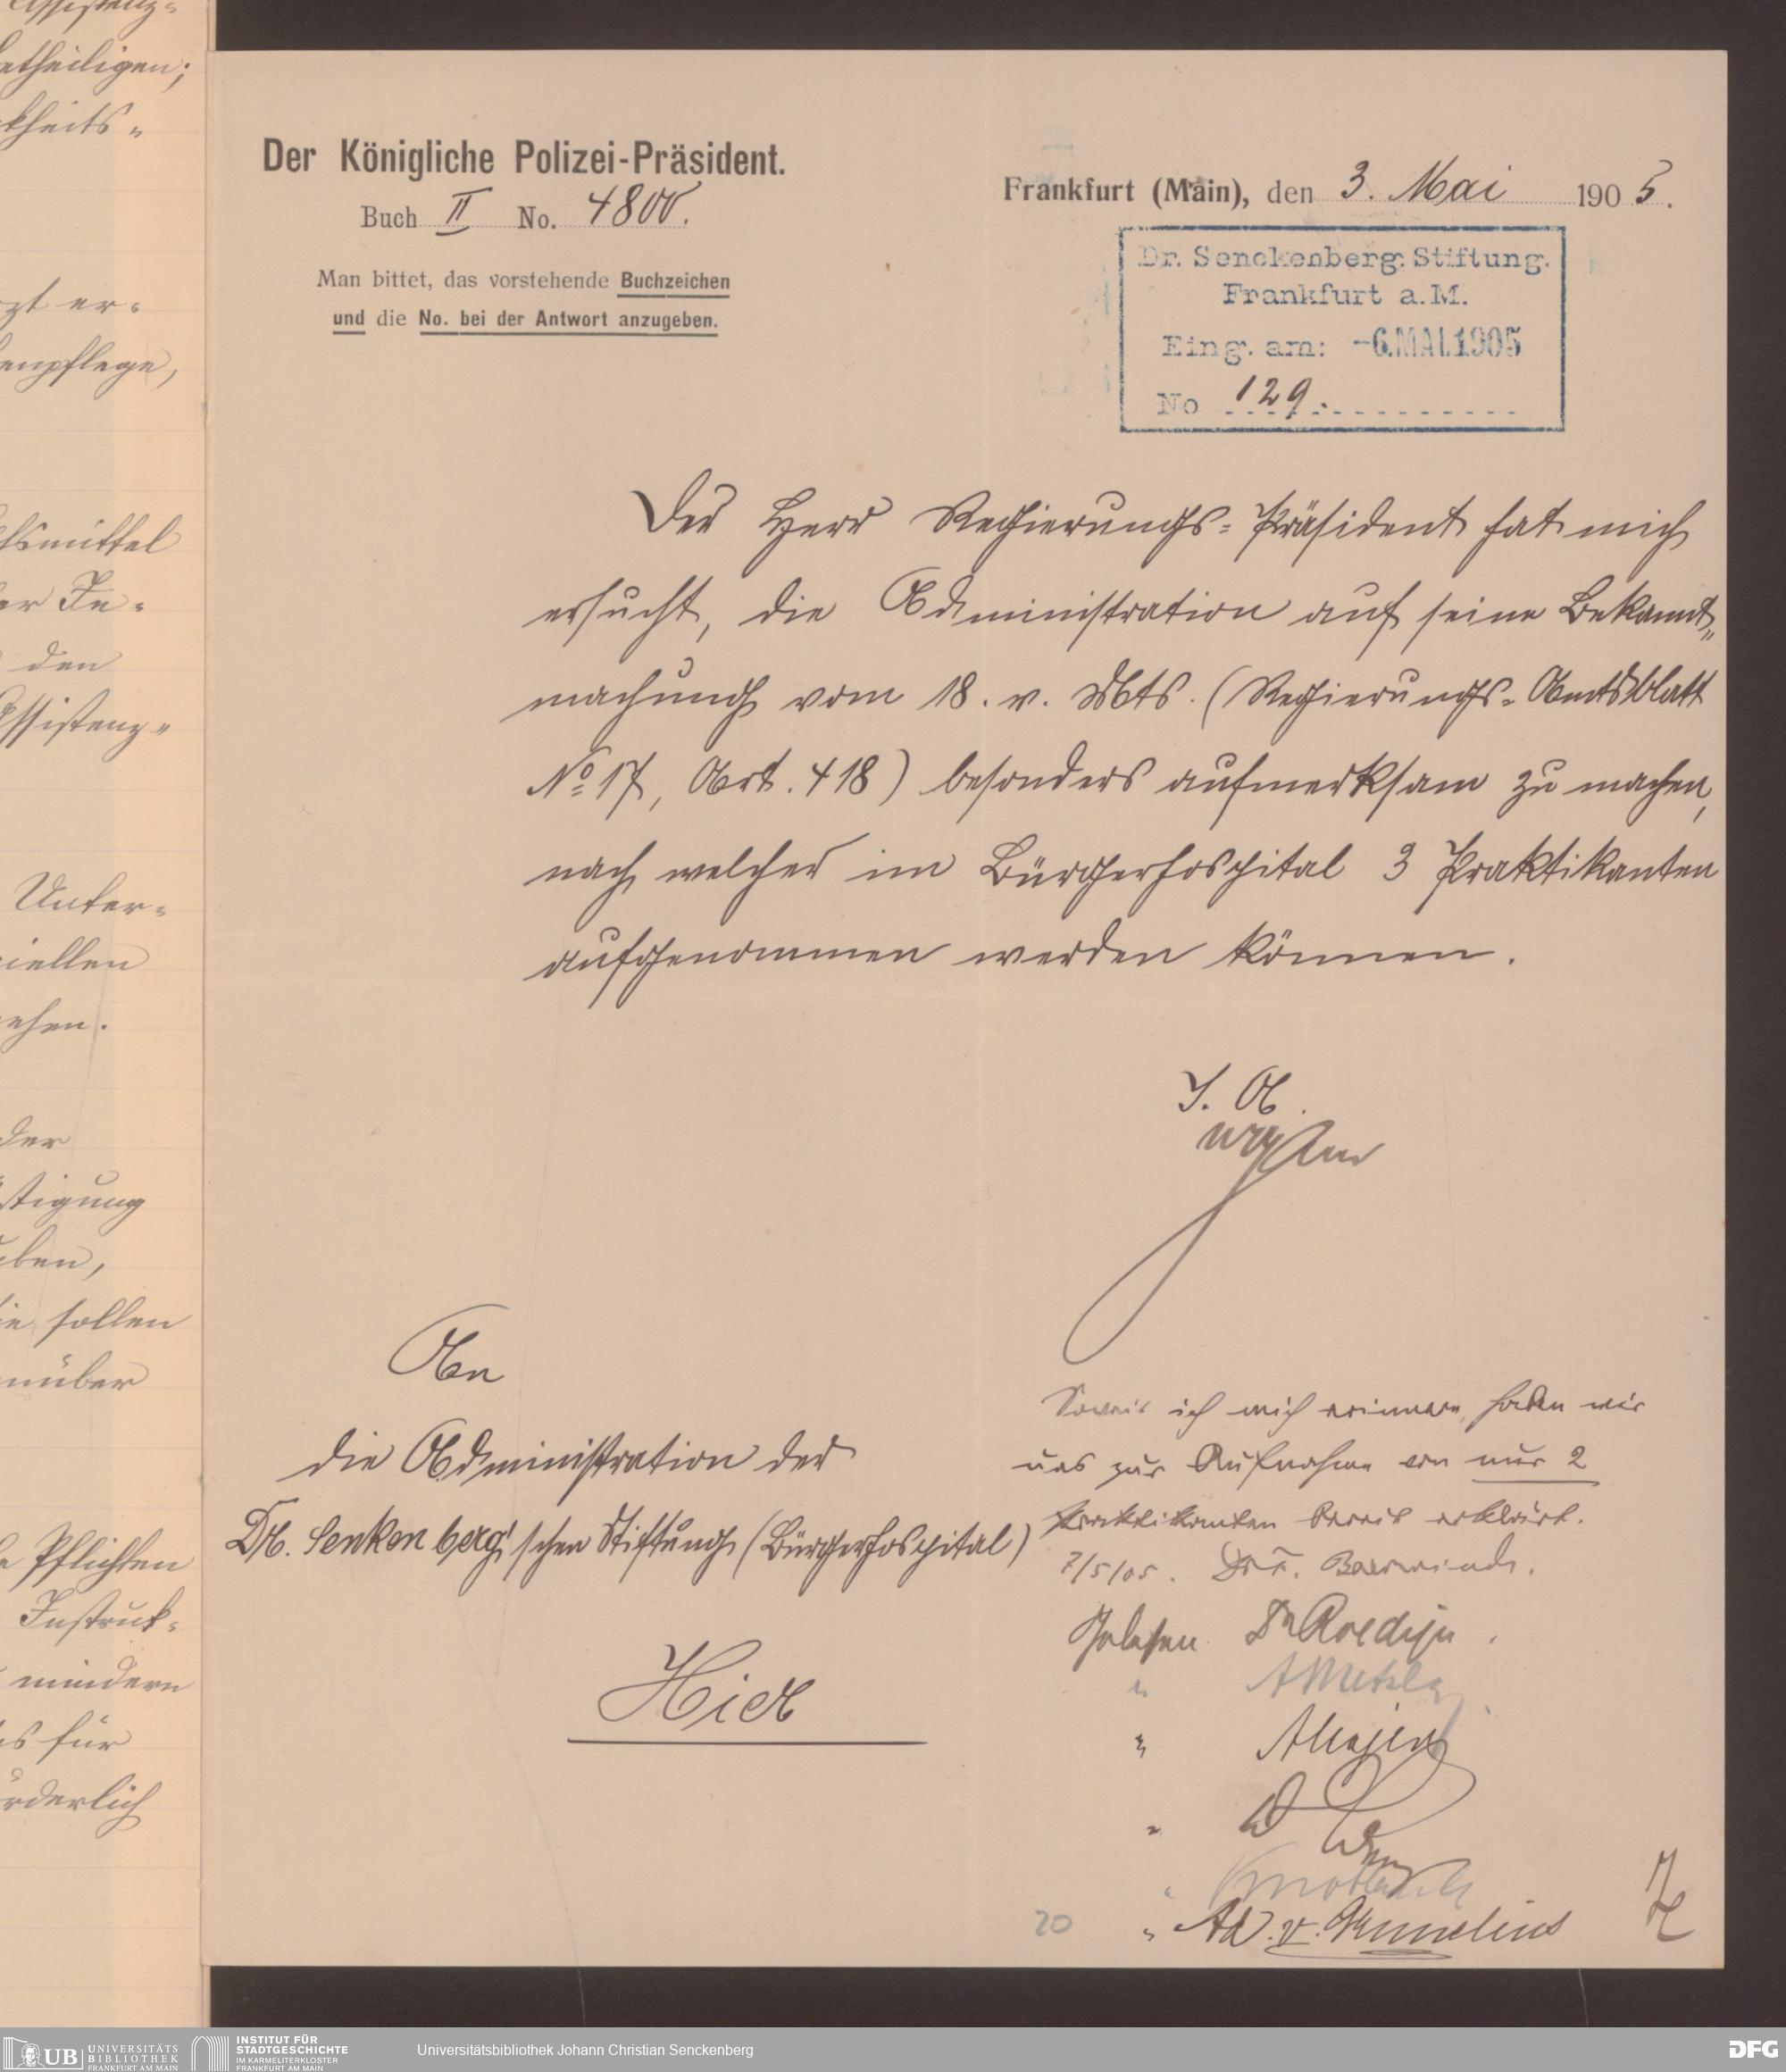 Assistenz-
betheiligen;
kheits-
zt er-
enpflege,
fsmittel
er In-
den
Assistenz-
Unter-
ziellen
ehen.
der
stigung
uben,
ie sollen
nüber
e Pflichten
Instruk-
mindern
s für
rderlich
Der Königliche Polizei-Präsident.
Buch II No. 4800.
Man bittet, das vorstehende Buchzeichen
und die No. bei der Antwort anzugeben.
Frankfurt (Main), den 3. Mai 1905.
Dr. Senckenberg. Stiftung.
Frankfurt a.M.
Eing. am: -6.MAI.1905
No 129.
Der Herr Regierungs-Präsident hat mich
ersucht, die Administration auf seine Bekannt-
machung vom 18. v. Mts. (Regierungs-Amtsblatt
No 17, Art. 418) besonders aufmerksam zu machen,
nach welcher im Bürgerhospital 3 Praktikanten
aufgenommen werden können.
I. A.
An
die Administration der
Dr. Senkenberg'schen Stiftung (Bürgerhospital)
Hier
Soweit ich mich erinnere, haben wir
uns zur Aufnahme von nur 2
Praktikanten bereit erklärt.
7/5/05. Dr. Baerwindt.
Gelesen Dr Roediger.
" A Metzler
"
"
" Knoblauch
20 " Ad. v.
UB UNIVERSITÄTS
BIBLIOTHEK
FRANKFURT AM MAIN
INSTITUT FÜR
STADTGESCHICHTE
IM KARMELITERKLOSTER
FRANKFURT AM MAIN
Universitätsbibliothek Johann Christian Senckenberg
DFG